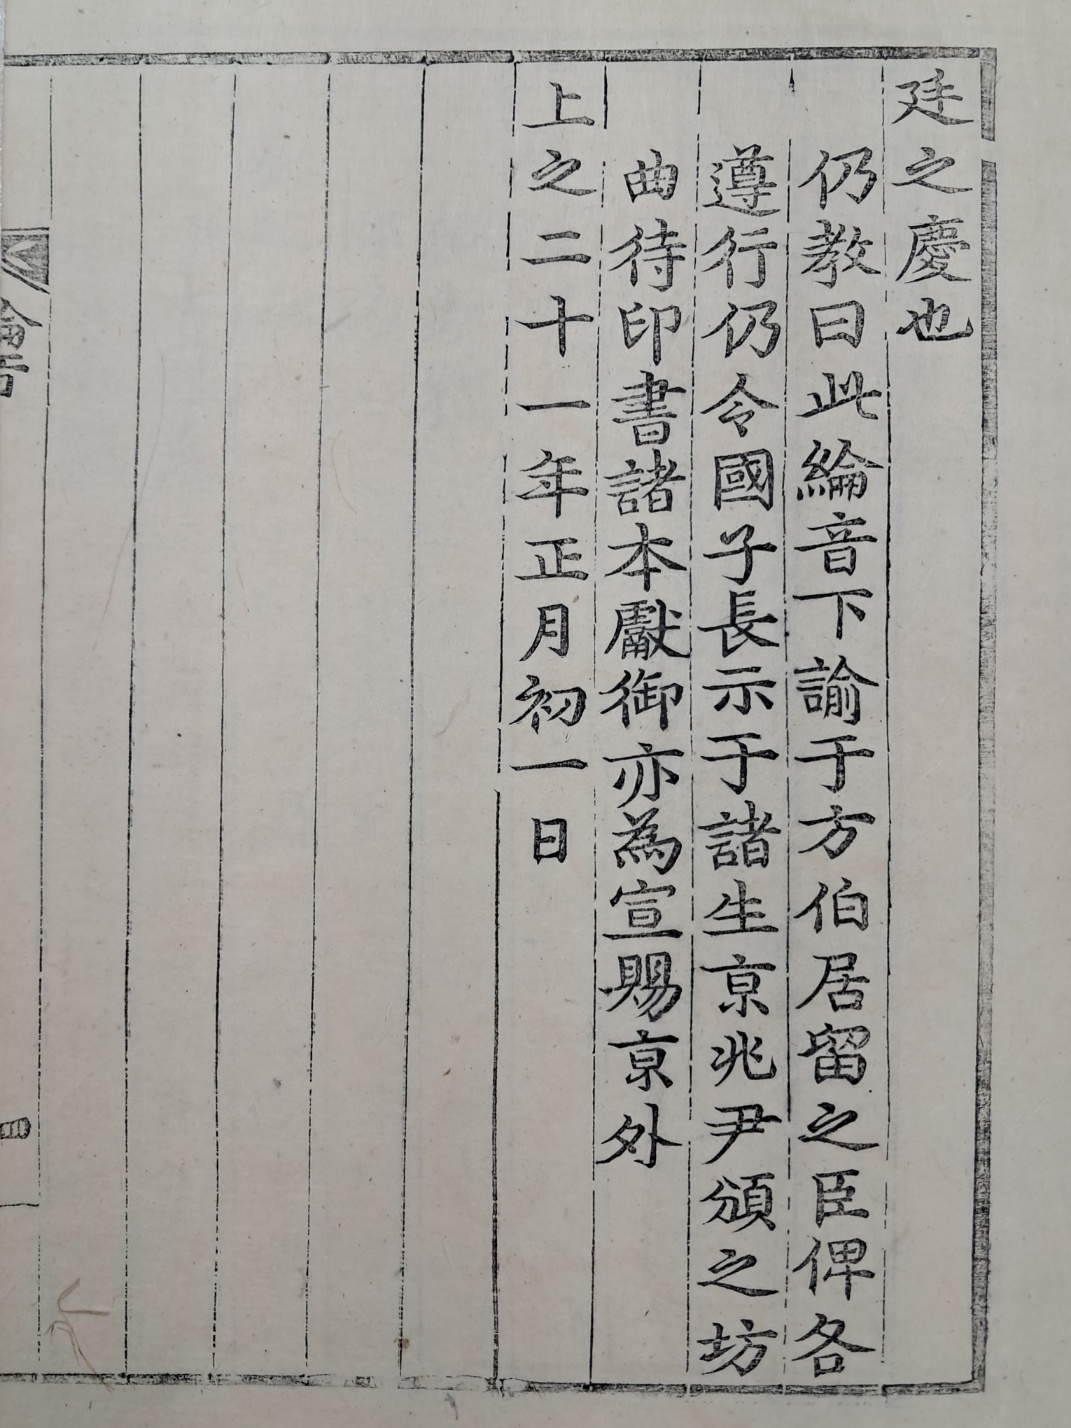 廷之慶也
仍教曰此綸音下諭于方伯居留之臣俾各
遵行仍令國子長示于諸生京兆尹頒之坊
曲待印書諸本獻御亦為宣賜京外
上之二十一年正月初一日